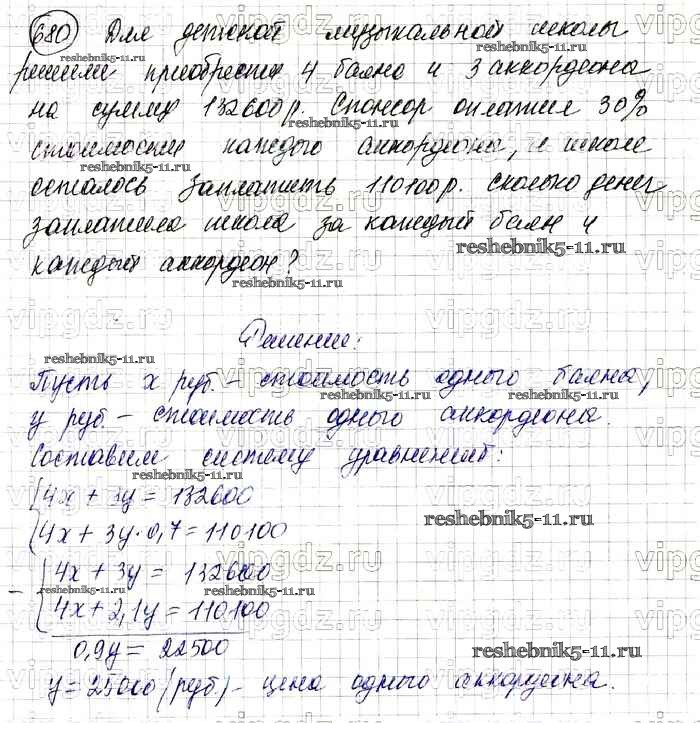 680 Для детской музыкальной школы
решили приобрести 4 баяна и 3 аккордеона
на сумму 132600р. Спонсор оплатил 30%
стоимости каждого аккордеона, и школе
осталось заплатить 110100р. сколько денег
заплатила школа за каждый баян и
каждый аккордеон?
Решение:
Пусть х руб. – стоимость одного баяна,
у руб. – стоимость одного аккордеона.
Составим систему уравнений:
{4х + 3у = 132600
{4х + 3у·0,7 = 110100
– {4х + 3у = 132600
{4х + 2,1у = 110100
0,9у = 22500
у = 25000 (руб) – цена одного аккордеона.
reshebnik5-11.ru
vipgdz.ru